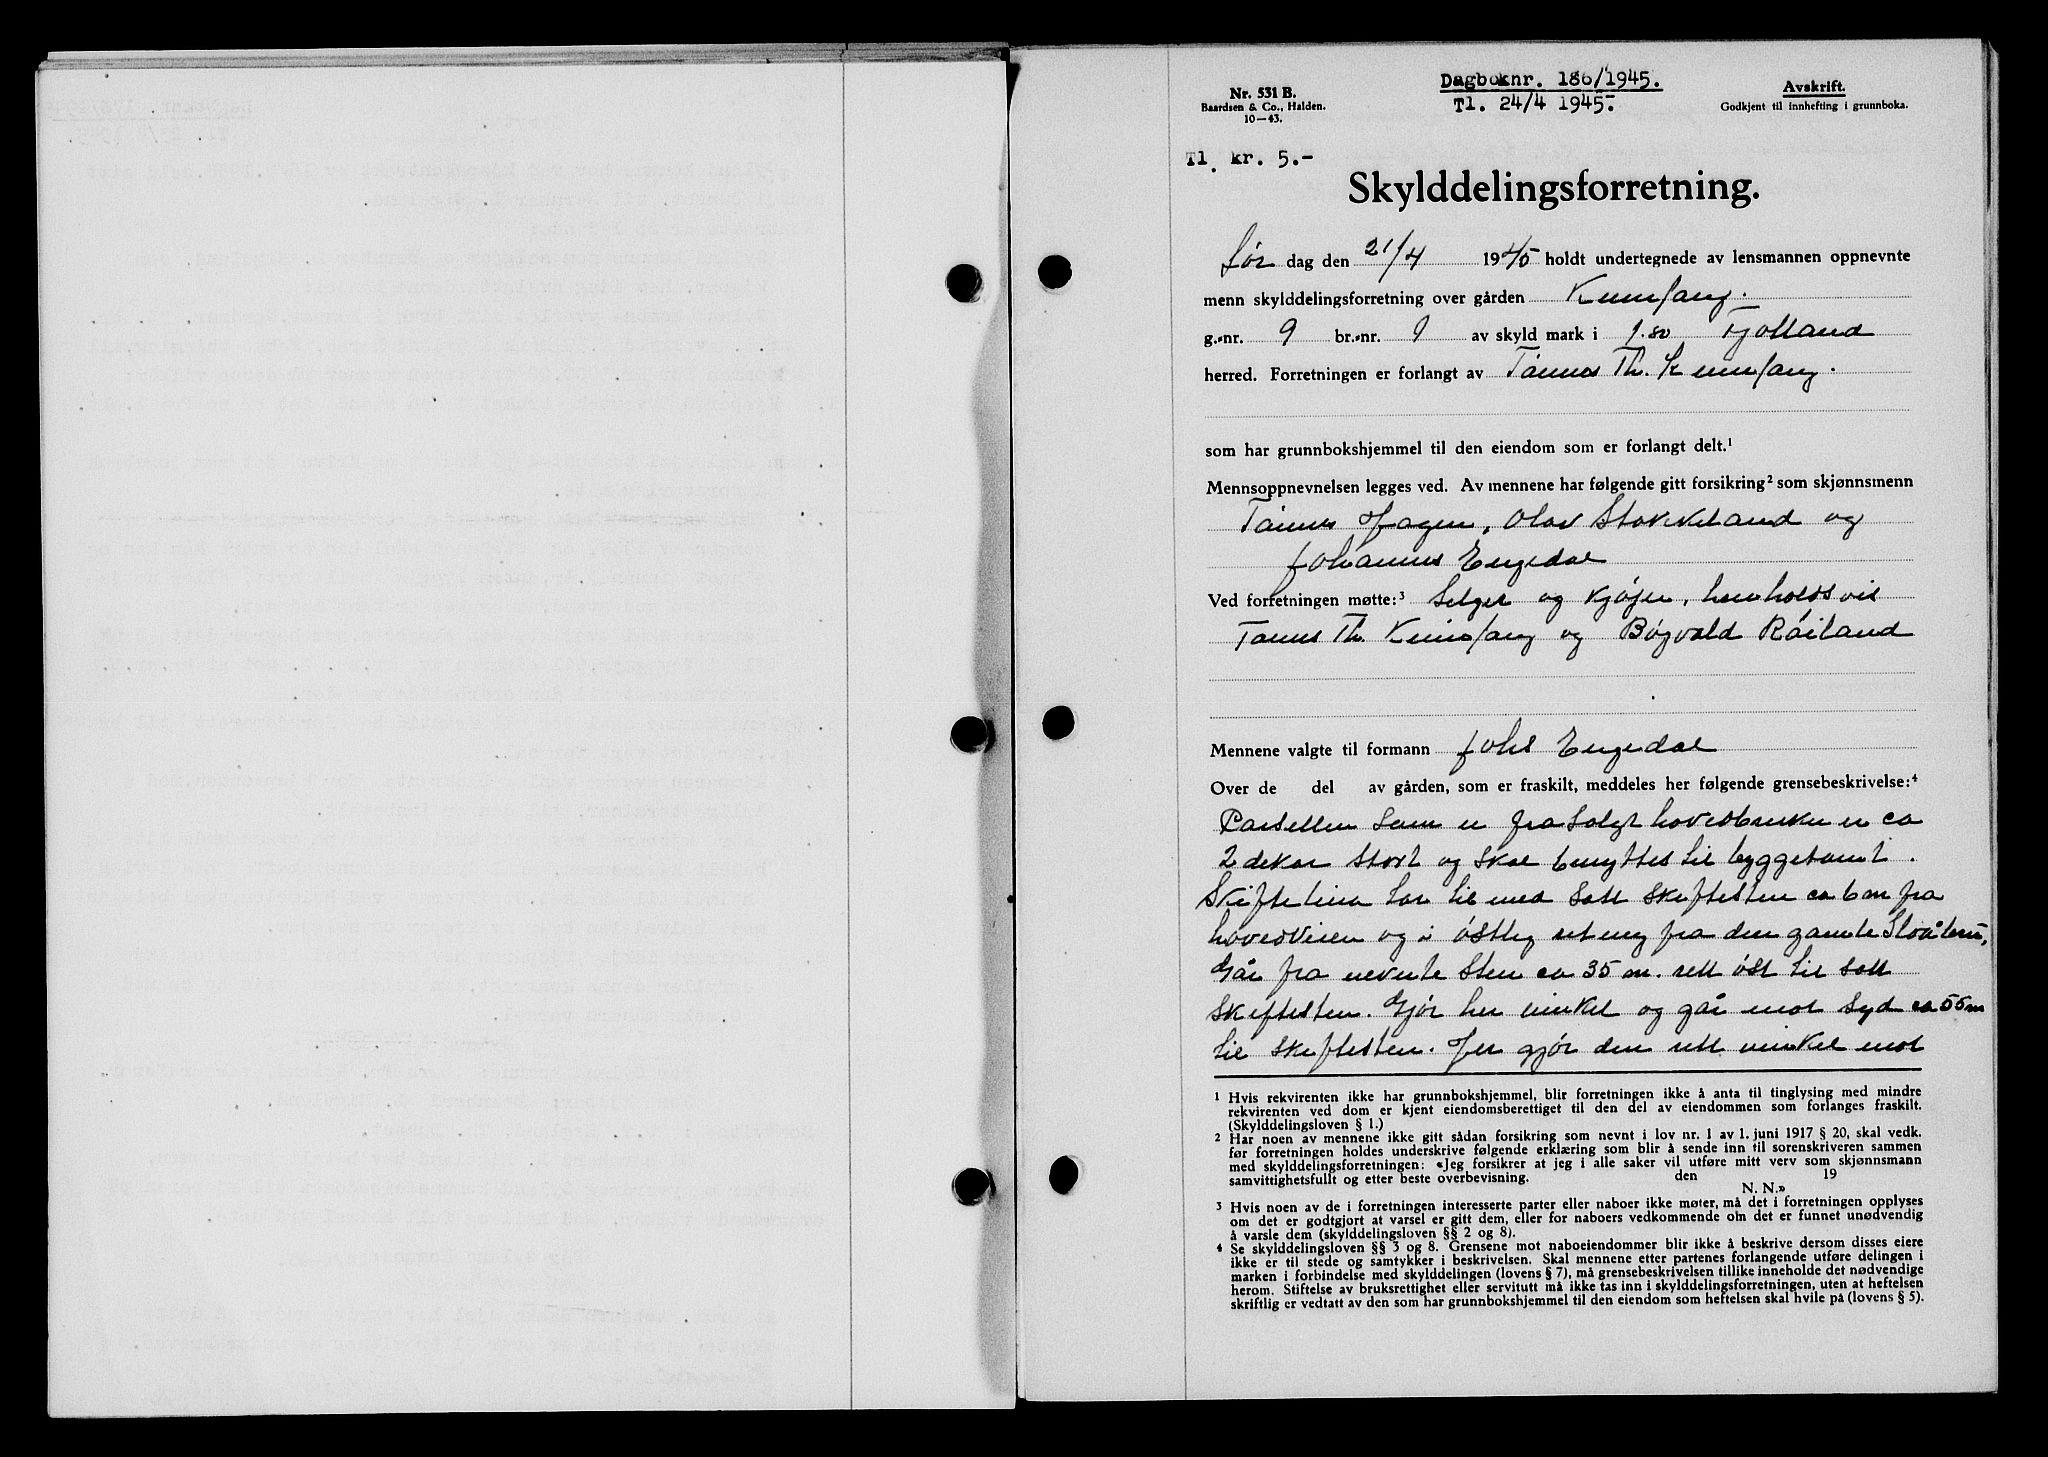 Nr. 531 B.
Baardsen & Co., Halden.
10—43.
Dagboknr. 186/1945.
Tl. 24/4 1945.
Avskrift.
Godkjent til innhefting i grunnboka.
Tl. kr. 5.-
Skylddelingsforretning.
Lør dag den 21/4 1945 holdt undertegnede av lensmannen oppnevnte
menn skylddelingsforretning over gården
g.-nr. 9 br.-nr. 1 av skyld mark i 1.80 Fjotland
herred. Forretningen er forlangt av Tønnes Th.
som har grunnbokshjemmel til den eiendom som er forlangt delt.¹
Mennsoppnevnelsen legges ved. Av mennene har følgende gitt forsikring² som skjønnsmenn
Tønnes Hagen, Olav Stokkeland og
Johannes Engedal
Ved forretningen møtte:³ Selger og kjøper, henholdsvis
Tønnes Th. og Bøgvald Røiland
Mennene valgte til formann Johs Engedal
Over de del av gården, som er fraskilt, meddeles her følgende grensebeskrivelse:⁴
Parsellen som er fra solgt hovedbruket er ca
2 dekar stort og skal benyttes til byggetomt.
Skiftelina tar til med satt skiftesten ca 6 m fra
hovedveien og i østlig retning fra den gamle
Går fra nevnte sten ca 35 m. rett øst til satt
skiftesten. Gjør her vinkel og går mot syd ca 55 m
til skiftesten. Her gjør den rett vinkel mot
¹ Hvis rekvirenten ikke har grunnbokshjemmel, blir forretningen ikke å anta til tinglysing med mindre
rekvirenten ved dom er kjent eiendomsberettiget til den del av eiendommen som forlanges fraskilt.
(Skylddelingsloven § 1.)
² Har noen av mennene ikke gitt sådan forsikring som nevnt i lov nr. 1 av 1. juni 1917 § 20, skal vedk.
før forretningen holdes underskrive følgende erklæring som blir å sende inn til sorenskriveren sammen
med skylddelingsforretningen: «Jeg forsikrer at jeg i alle saker vil utføre mitt verv som skjønnsmann
samvittighetsfullt og etter beste overbevisning. den 19
N. N.»
³ Hvis noen av de i forretningen interesserte parter eller naboer ikke møter, må det i forretningen opplyses
om det er godtgjort at varsel er gitt dem, eller for naboers vedkommende om det er funnet unødvendig
å varsle dem (skylddelingsloven §§ 2 og 8).
⁴ Se skylddelingsloven §§ 3 og 8. Grensene mot naboeiendommer blir ikke å beskrive dersom disses eiere
ikke er til stede og samtykker i beskrivelsen. Skal mennene etter partenes forlangende utføre delingen i
marken i forbindelse med skylddelingen (lovens § 7), må grensebeskrivelsen tillike inneholde det nødvendige
herom. Stiftelse av bruksrettighet eller servitutt må ikke tas inn i skylddelingsforretningen, uten at heftelsen
skriftlig er vedtatt av den som har grunnbokshjemmel til den eiendom som heftelsen skal hvile på (lovens § 5).